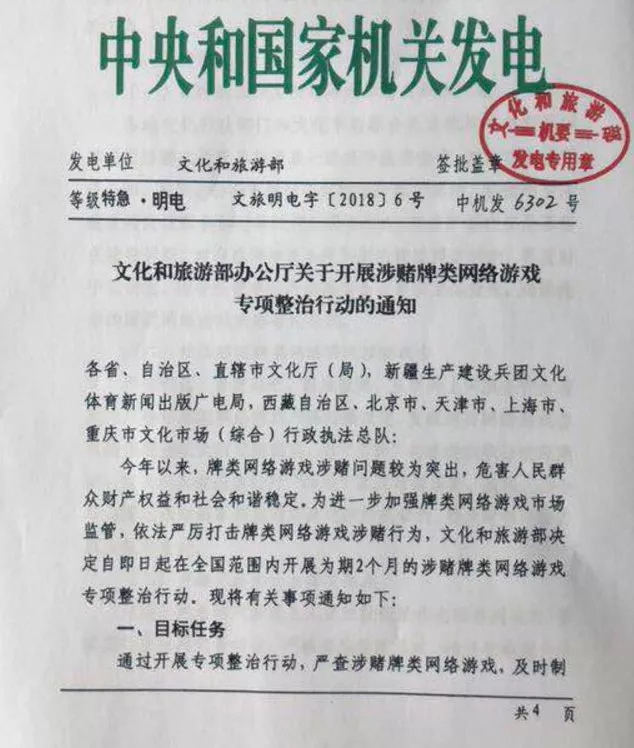 中央和国家机关发电
文化和旅游部
机要
发电专用章
发电单位 文化和旅游部 签批盖章
等级特急·明电 文旅明电字〔2018〕6号 中机发6302号
文化和旅游部办公厅关于开展涉赌牌类网络游戏
专项整治行动的通知
各省、自治区、直辖市文化厅（局），新疆生产建设兵团文化
体育新闻出版广电局，西藏自治区、北京市、天津市、上海市、
重庆市文化市场（综合）行政执法总队：
今年以来，牌类网络游戏涉赌问题较为突出，危害人民群
众财产权益和社会和谐稳定。为进一步加强牌类网络游戏市场
监管，依法严厉打击牌类网络游戏涉赌行为，文化和旅游部决
定自即日起在全国范围内开展为期2个月的涉赌牌类网络游戏
专项整治行动。现将有关事项通知如下：
一、目标任务
通过开展专项整治行动，严查涉赌牌类网络游戏，及时制
共4 页